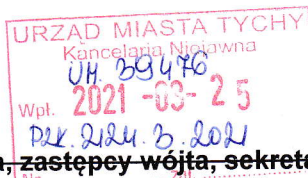 URZĄD MIASTA TYCHY
Kancelaria Niejawna
UM. 39476
Wpł. 2021 -03- 25
PZK. 2124. 3. 2021
, zastępcy wójta, sekreta